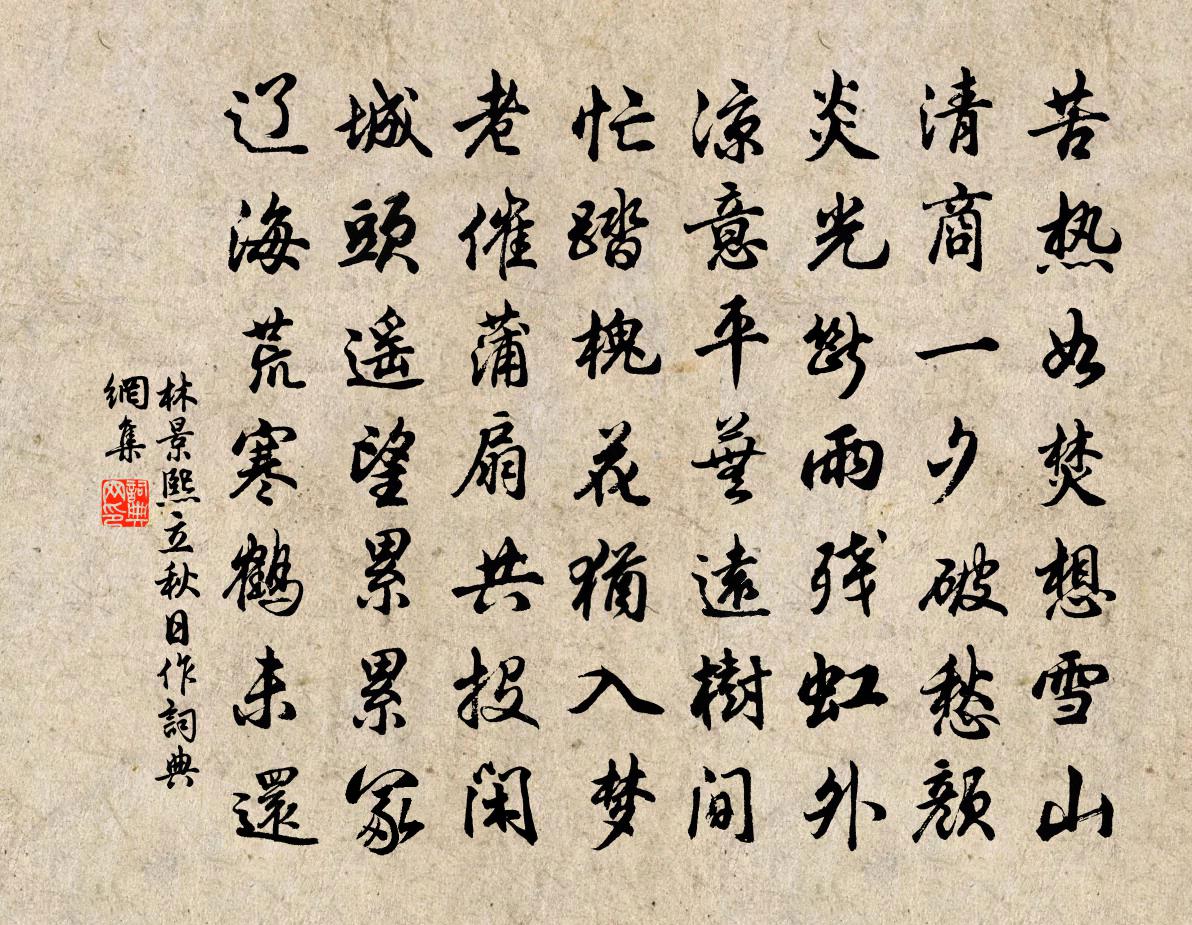 苦热如焚想雪山
清商一夕破愁颜
炎光断雨残虹外
凉意平芜远樹间
忙踏槐花猶入梦
老催蒲扇共投闲
城頭遥望累累冢
辽海荒寒鹤未還
林景熙立秋日作詞典
網集
詞典
网印